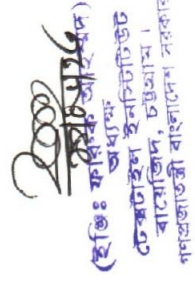 (ইঞ্জিঃ ফারুক আহম্মদ)
অধ্যক্ষ
টেক্সটাইল ইনস্টিটিউট
বায়েজিদ, চট্টগ্রাম।
গণপ্রজাতন্ত্রী বাংলাদেশ সরকার